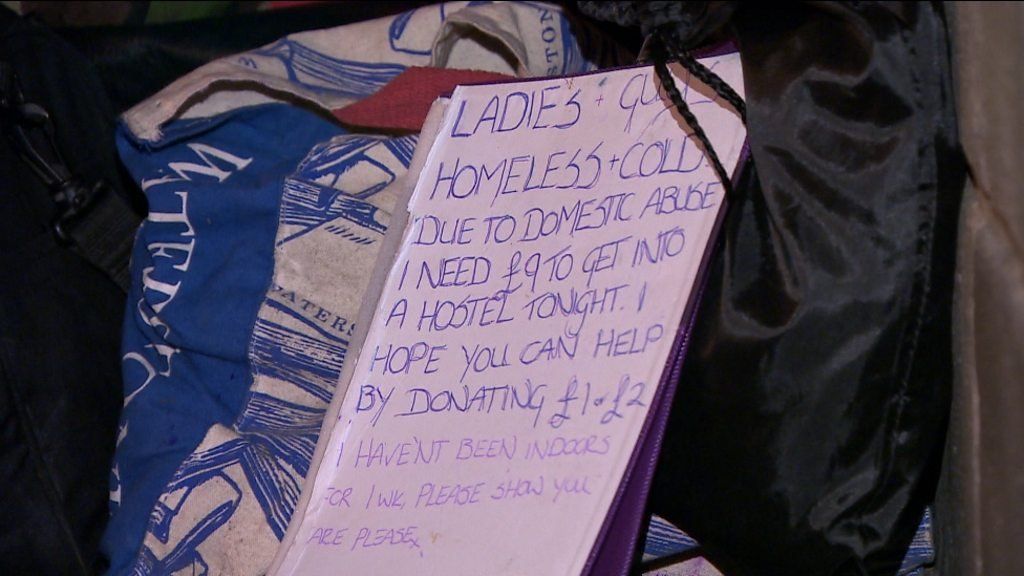 LADIES + GUYS
HOMELESS + COLD
DUE TO DOMESTIC ABUSE
I NEED £9 TO GET INTO
A HOSTEL TONIGHT. I
HOPE YOU CAN HELP
BY DONATING £1 or £2
I HAVEN'T BEEN INDOORS
FOR 1 WK, PLEASE SHOW YOU
ARE PLEASE x
STON
ATERS